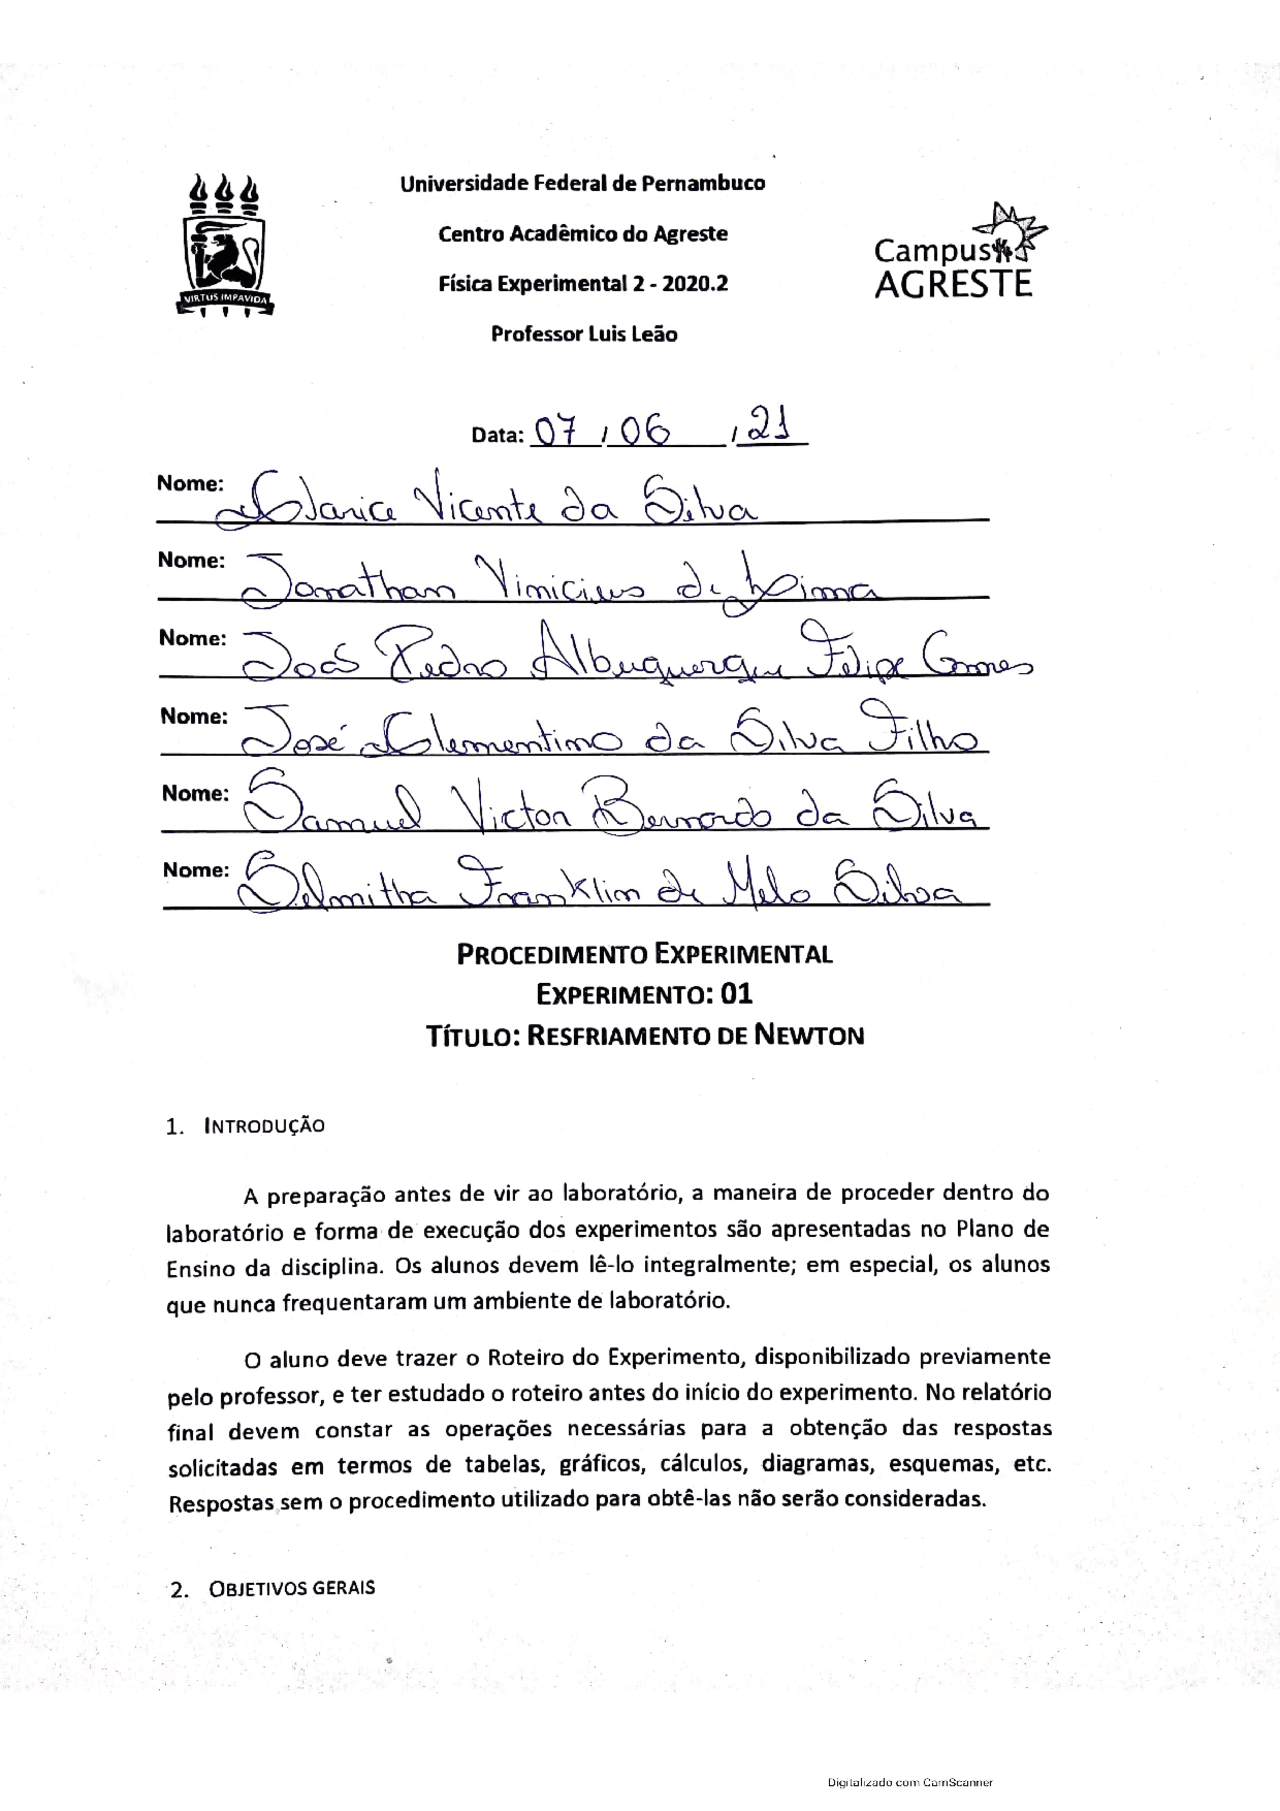 Universidade Federal de Pernambuco
Centro Acadêmico do Agreste
Física Experimental 2 - 2020.2
Professor Luis Leão
VIRTUS IMPAVIDA
Campus
AGRESTE
Data: 07 / 06 / 21
Nome: Clarice Vicente da Silva
Nome: Jonathan Vinicius de Lima
Nome: José Pedro Albuquerque Felipe Gomes
Nome: José Clementino da Silva Filho
Nome: Samuel Victor Bernardo da Silva
Nome: Selmitha Franklin de Melo Silva
PROCEDIMENTO EXPERIMENTAL
EXPERIMENTO: 01
TÍTULO: RESFRIAMENTO DE NEWTON
1. INTRODUÇÃO
A preparação antes de vir ao laboratório, a maneira de proceder dentro do
laboratório e forma de execução dos experimentos são apresentadas no Plano de
Ensino da disciplina. Os alunos devem lê-lo integralmente; em especial, os alunos
que nunca frequentaram um ambiente de laboratório.
O aluno deve trazer o Roteiro do Experimento, disponibilizado previamente
pelo professor, e ter estudado o roteiro antes do início do experimento. No relatório
final devem constar as operações necessárias para a obtenção das respostas
solicitadas em termos de tabelas, gráficos, cálculos, diagramas, esquemas, etc.
Respostas sem o procedimento utilizado para obtê-las não serão consideradas.
2. OBJETIVOS GERAIS
Digitalizado com CamScanner